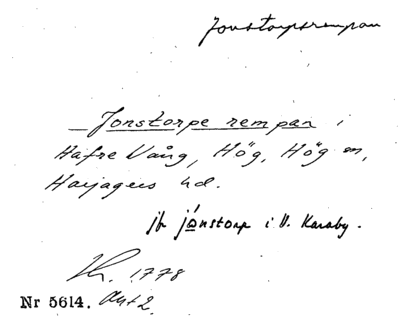 Jonstorpsrempan
Jonstorpe rempan i
Hafre Vång, Hög, Hög sn,
Harjagers hd.
jfr jonstorp i V. Karaby.
1778
Nr 5614. Akt 2.